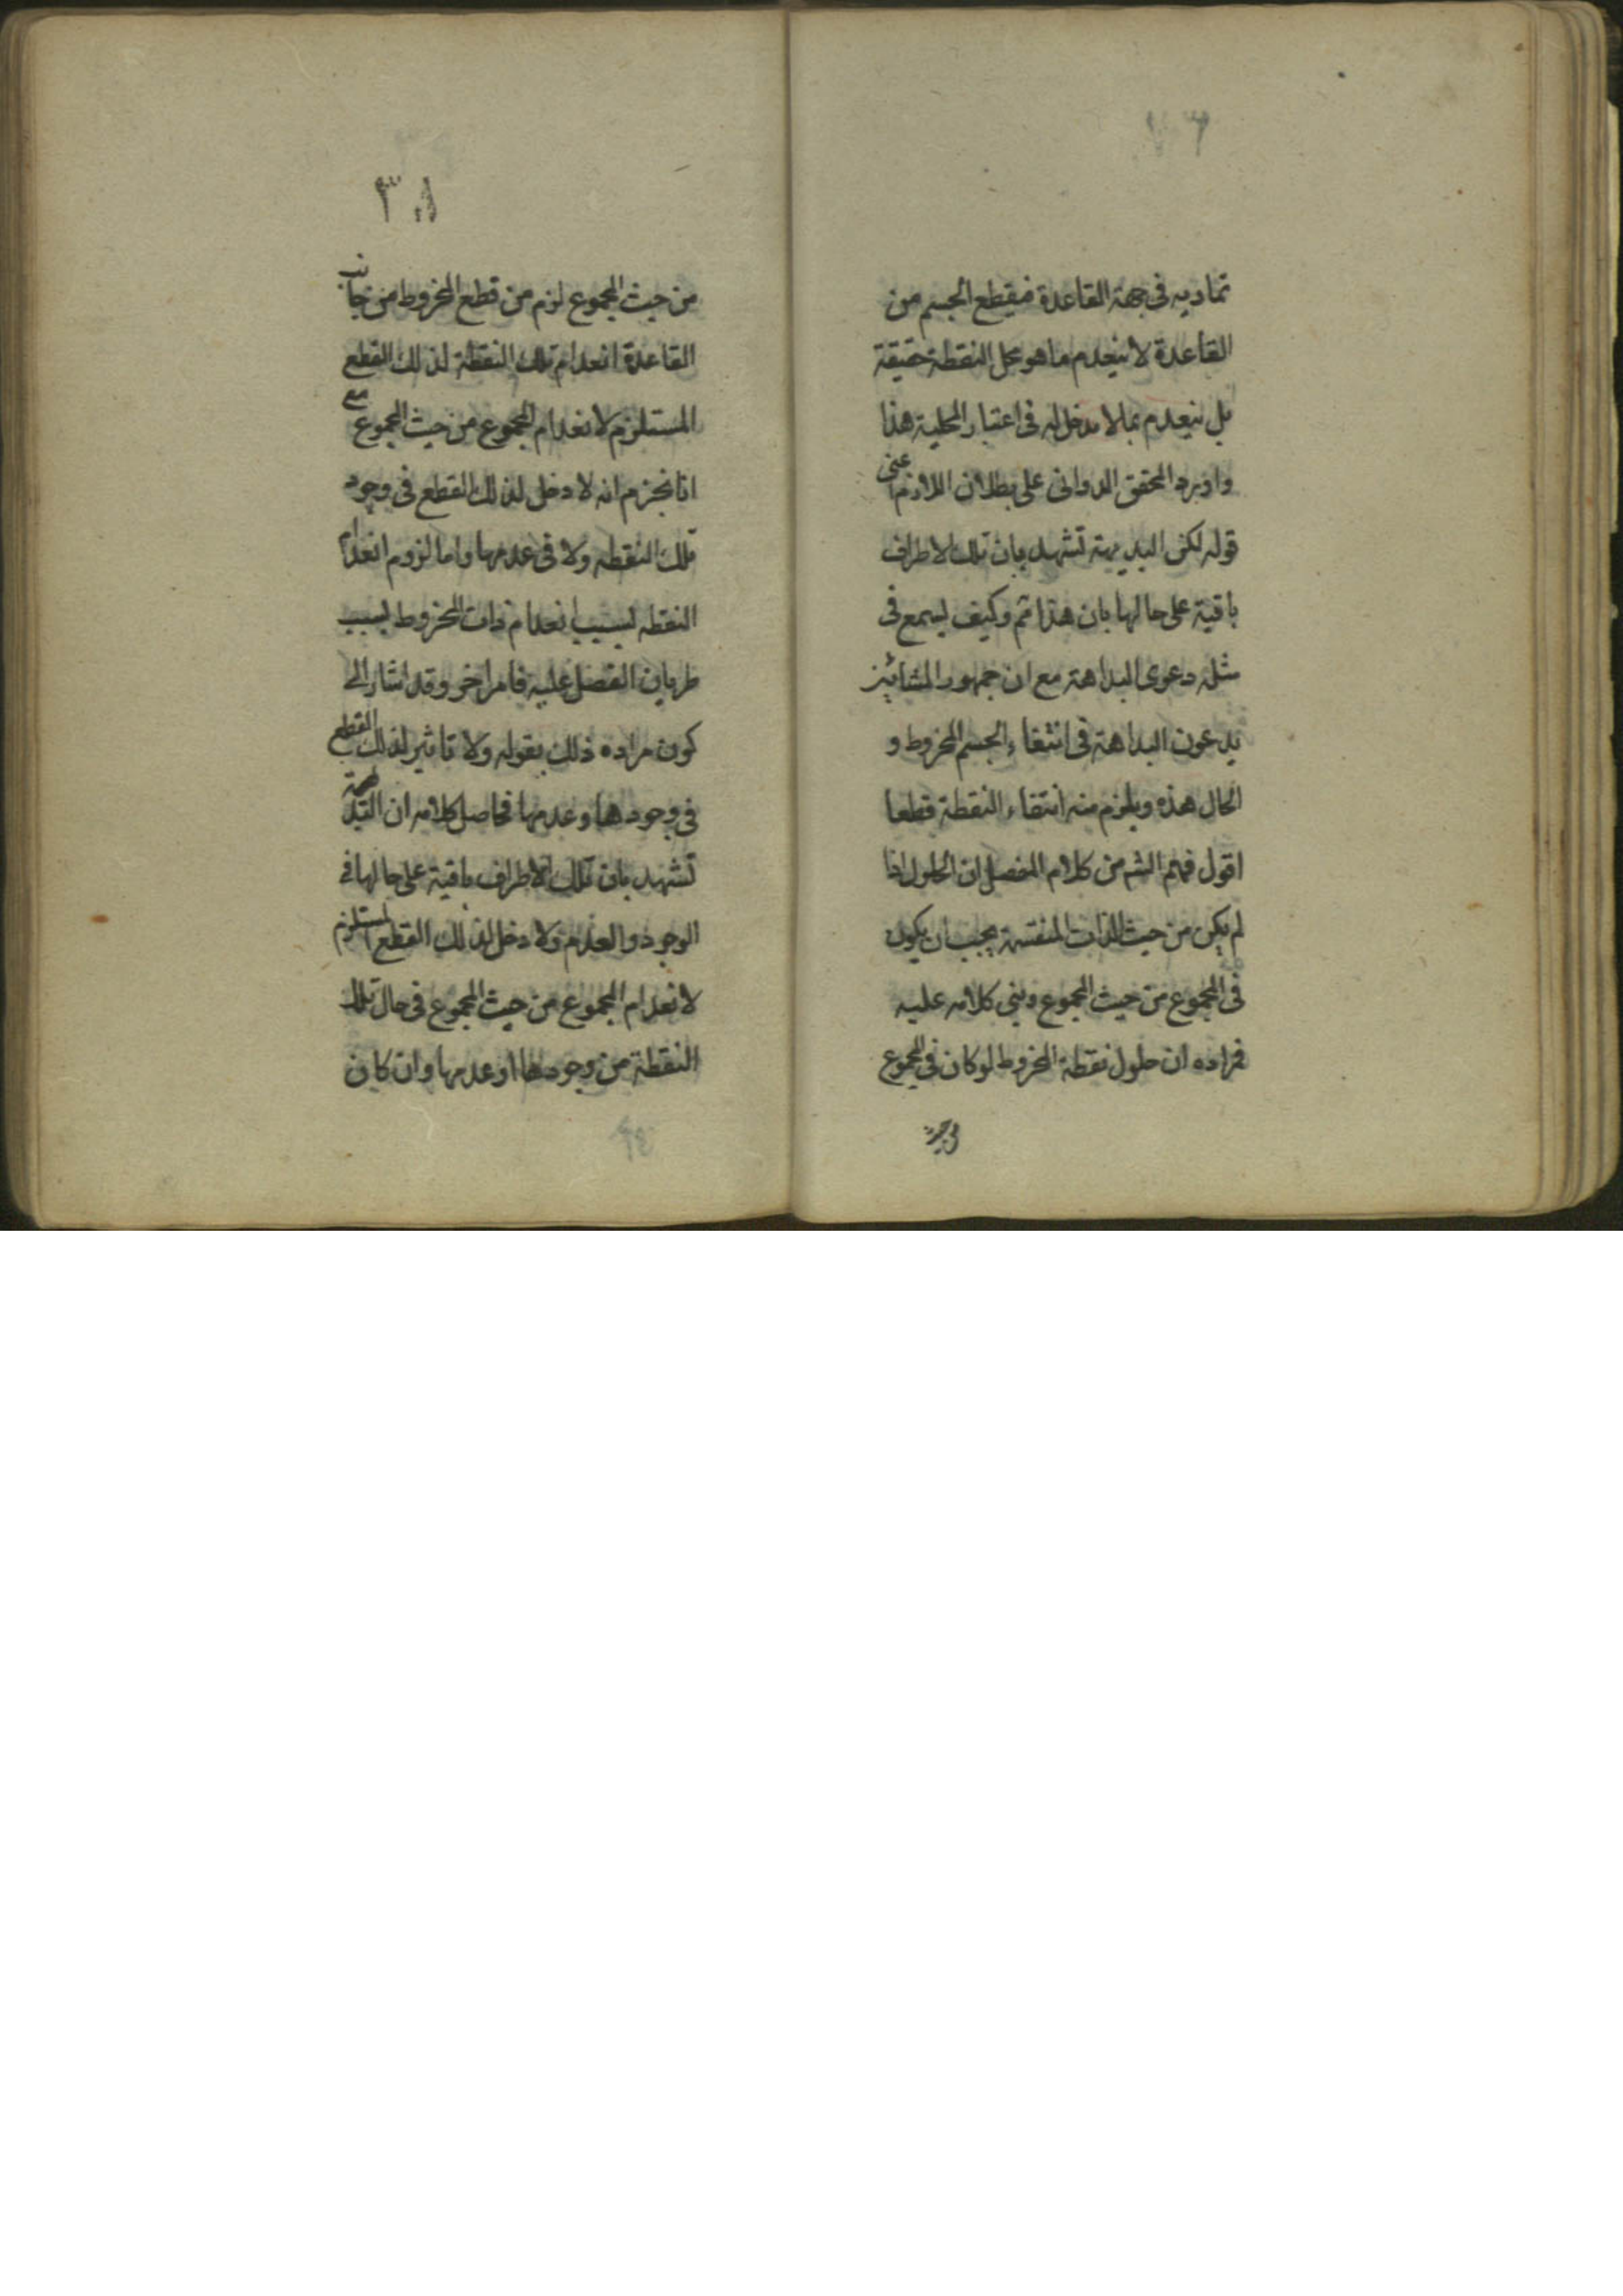 تماديه في جهة القاعدة فيقطع الجسم من
القاعدة لا ينعدم ما هو محل النقطة حقيقة
بل ينعدم بما لا مدخل له في اعتبار المحلية هذا
واورد المحقق الدواني على بطلان اللازم اعني
قوله لكن البديهة تشهد بان تلك الاطراف
باقية على حالها بان هذا ثم وكيف يسمع في
مثله دعوى البداهة مع ان جمهور المشائين
يدعون البداهة في انتفاء الجسم المخروط و
الحال هذه ويلزم منه انتفاء النقطة قطعا
اقول فهم الش من كلام المفصل ان الحلول اذا
لم يكن من حيث الذات المنقسمة يجب ان يكون
في المجموع من حيث المجموع وبنى كلامه عليه
فمراده ان حلول نقطة المخروط لو كان في المجموع
من حيث
٣٨
من حيث المجموع لزم من قطع المخروط من جانب
القاعدة انعدام تلك النقطة لذلك القطع
المستلزم لانعدام المجموع من حيث المجموع مع
انا نجزم انه لا دخل لذلك القطع في وجود
تلك النقطه ولا في عدمها واما لزوم انعدام
النقطه بسبب انعدام ذات المخروط بسبب
طريان الفصل عليه فامر اخر وقد اشار الى
كون مراده ذلك بقوله ولا تاثير لذلك القطع
في وجودها وعدمها فحاصل كلامه ان البديهة
تشهد بان تلك الاطراف باقية على حالها في
الوجود والعدم ولا دخل لذلك القطع المستلزم
لانعدام المجموع من حيث المجموع في حال تلك
النقطة من وجودها او عدمها وان كان